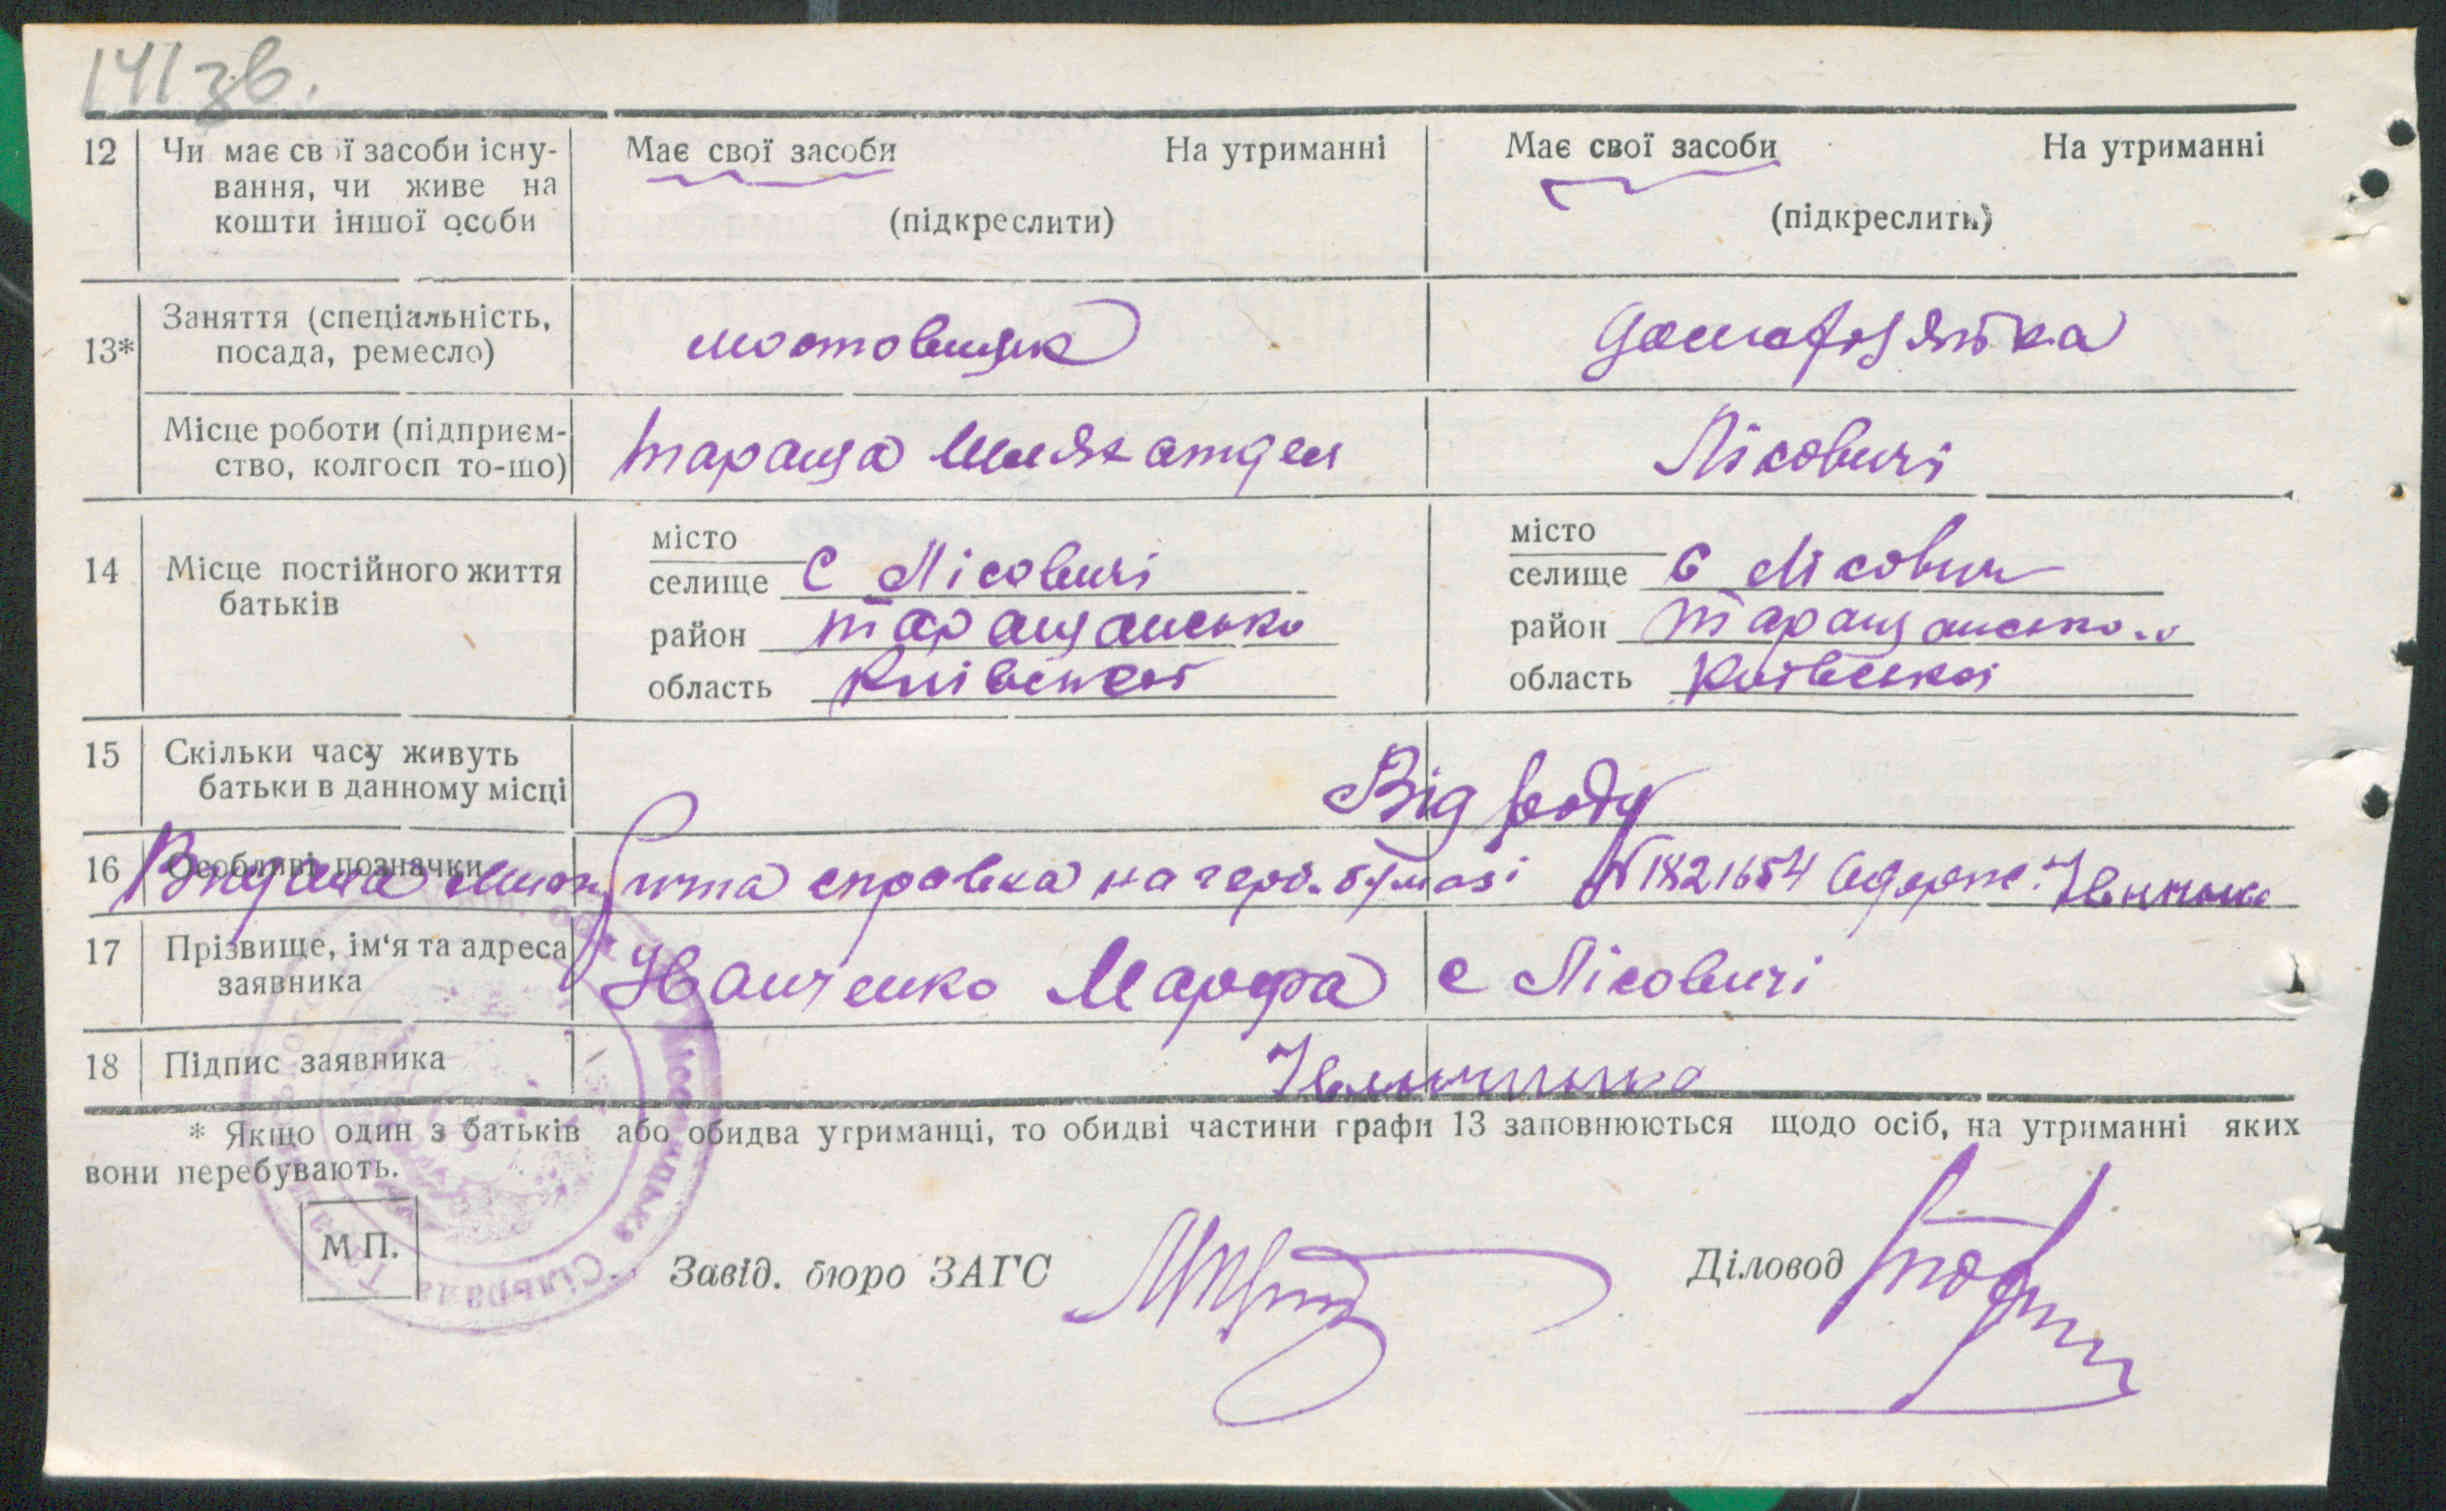 141 зв.
12 Чи має свої засоби існу- Має свої засоби На утриманні Має свої засоби На утриманні
вання, чи живе на
кошти іншої особи (підкреслити) (підкреслити)
Заняття (спеціальність,
13* посада, ремесло) мостовщик домогосянка
Місце роботи (підприєм-
ство, колгосп то-що) Тараща Шлях отдел Лісовичі
місто місто
14 Місце постійного життя селище С Лісовичі селище С Лісович
батьків район Таращансько район Таращансько
область Київської область Київської
15 Скільки часу живуть
батьки в данному місці Від роду
16 Особливі позначки Видана справка на герб. бумазі № 1821654 Одерж.
17 Прізвище, ім'я та адреса
заявника Іванченко Марфа с Лісовичі
18 Підпис заявника
* Якщо один з батьків або обидва утриманці, то обидві частини графи 13 заповнюються щодо осіб, на утриманні яких
вони перебувають.
М П.
Завід. бюро ЗАГС Діловод
Сільрада